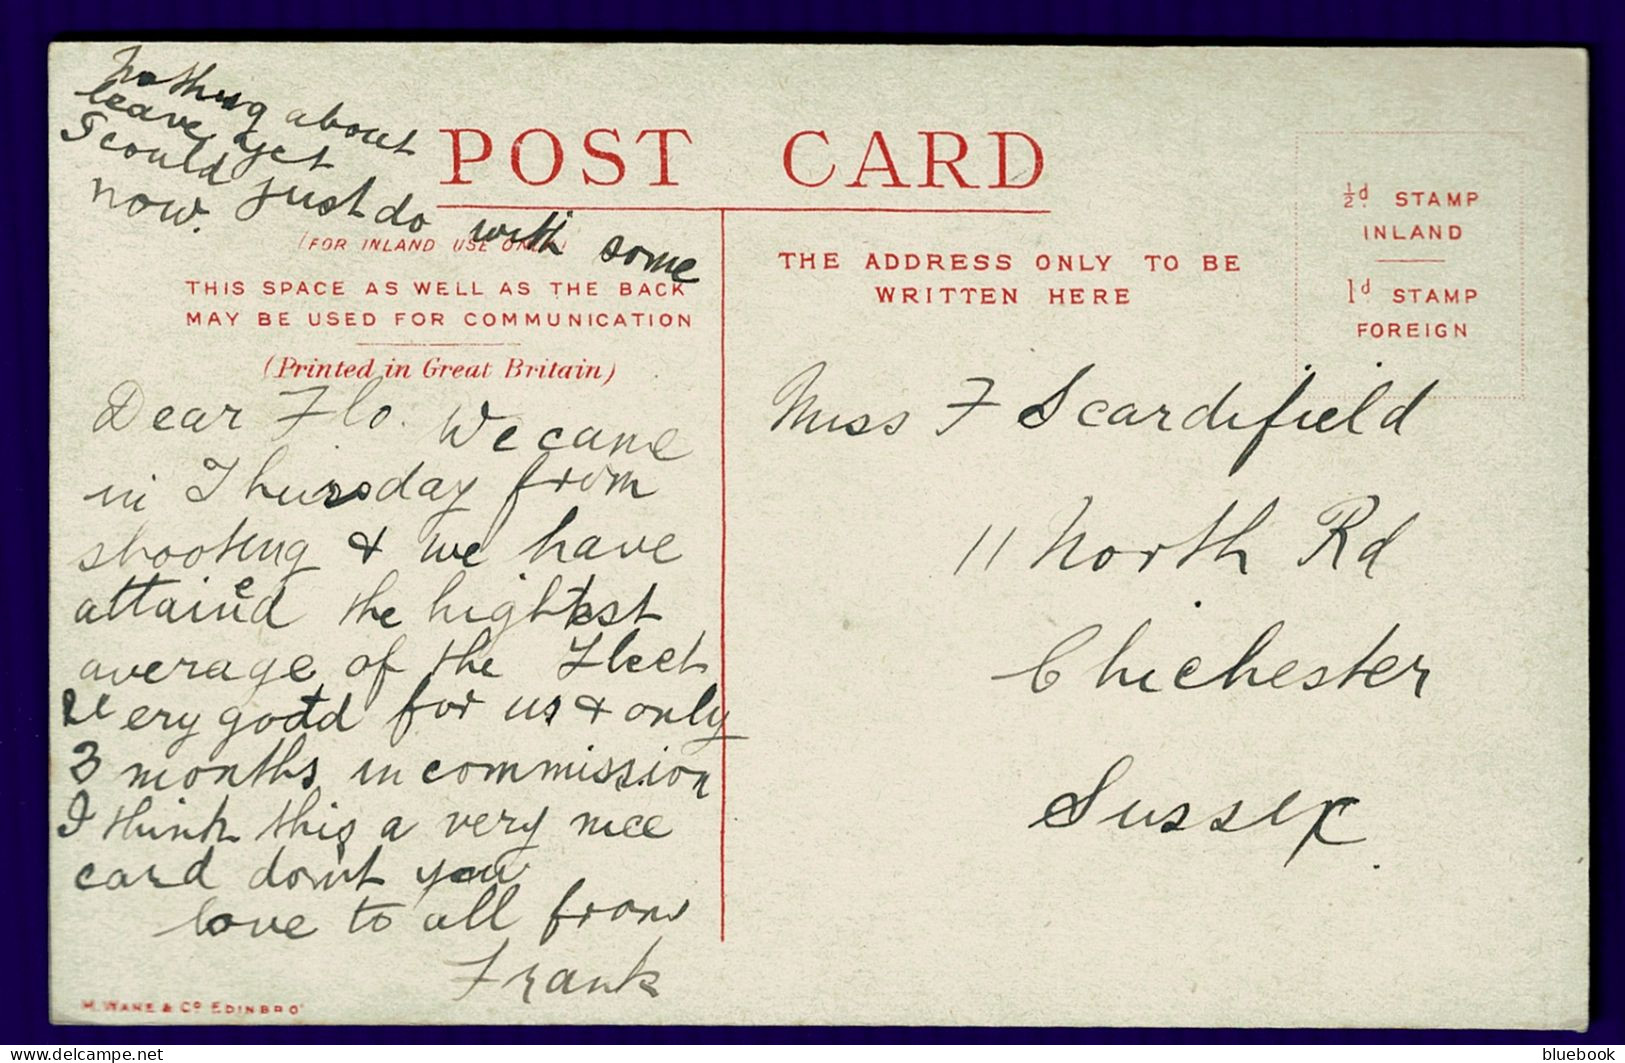 Nothing about
leave yet
I could just do with some
now.
POST CARD
(FOR INLAND USE ONLY)
THIS SPACE AS WELL AS THE BACK
MAY BE USED FOR COMMUNICATION
(Printed in Great Britain)
Dear Flo. We came
in Thursday from
shooting & we have
attained the hightest
average of the Fleet
very good for us & only
3 months in commission
I think this a very nice
card don't you
love to all from
Frank
THE ADDRESS ONLY TO BE
WRITTEN HERE
½d STAMP
INLAND
1d STAMP
FOREIGN
Miss F Scardifield
11 North Rd
Chichester
Sussex.
& Co EDINBRO'
bluebook
delcampe.net